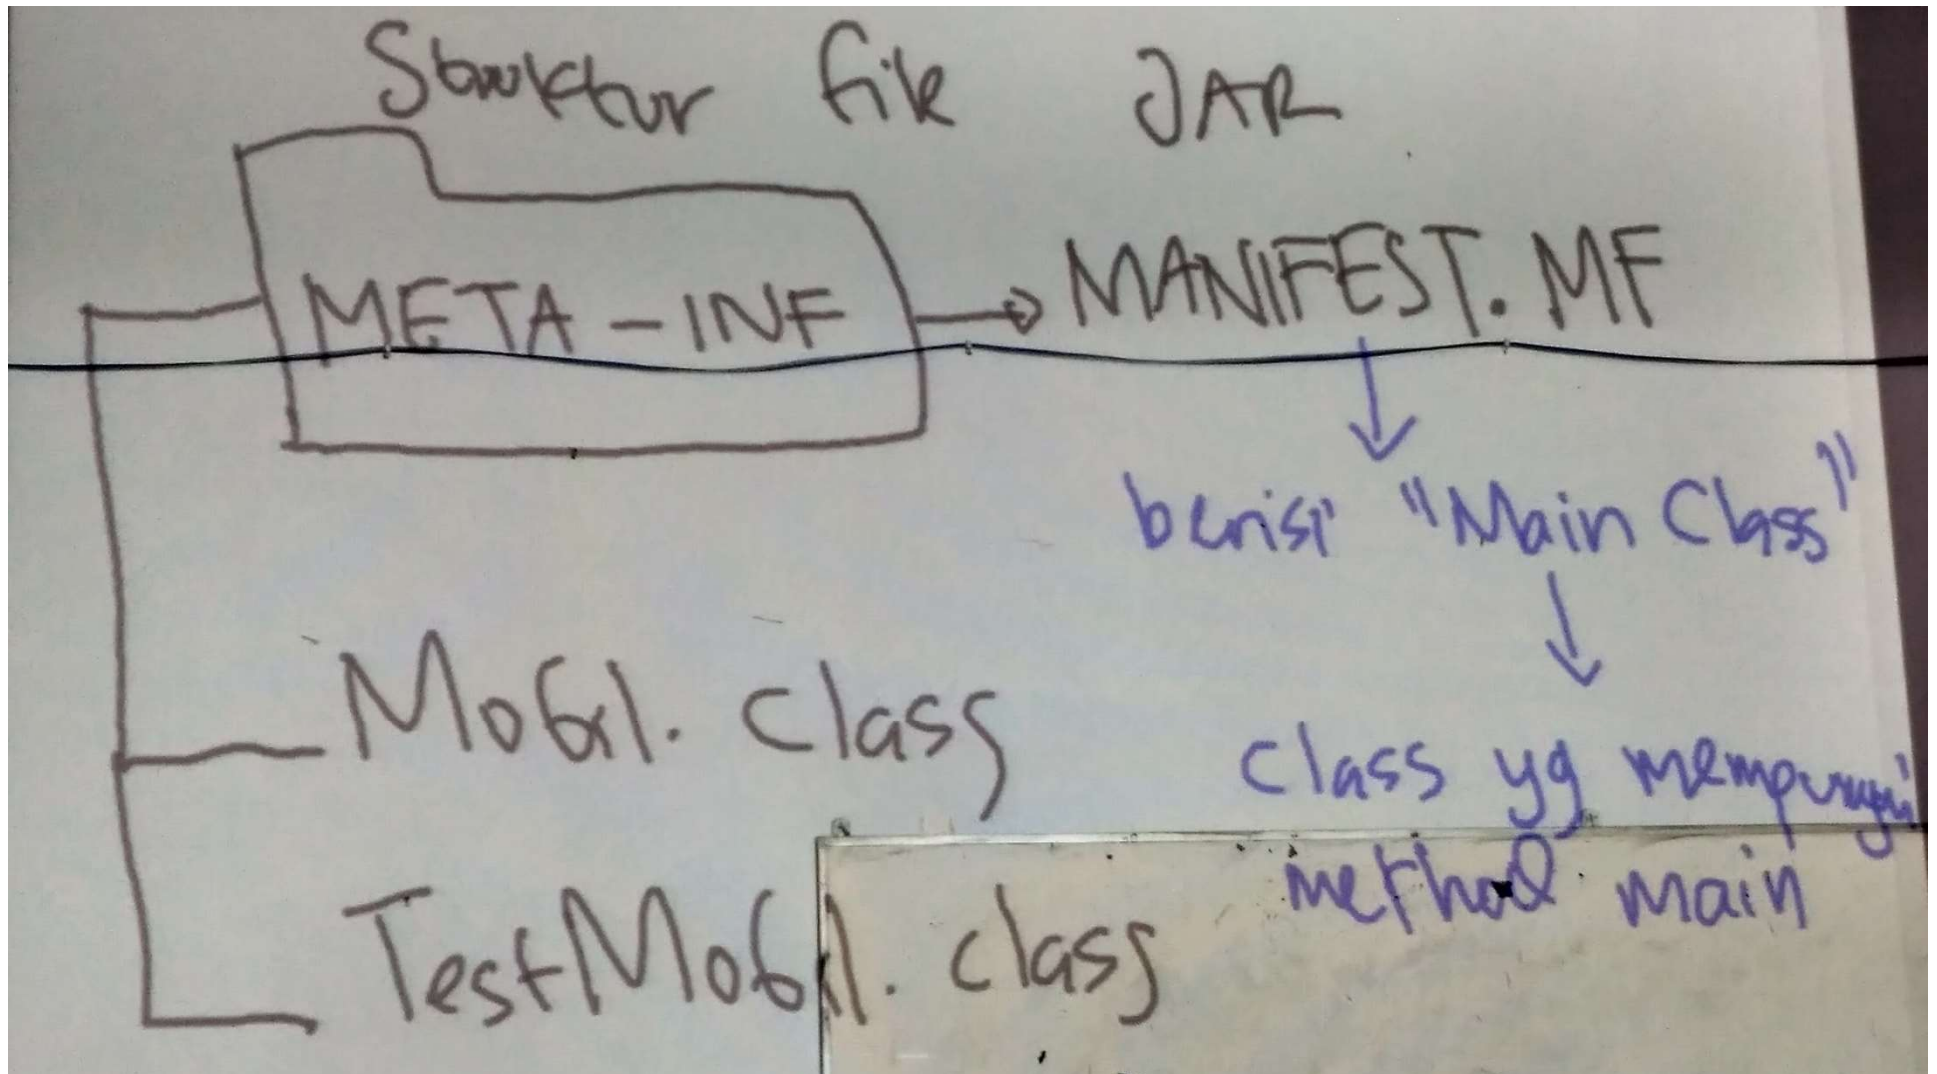 Struktur file JAR
META-INF → MANIFEST.MF
berisi "Main Class"
class yg mempunyai
method main
Mobil.class
TestMobil.class